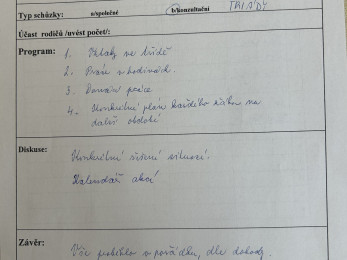 TŘÍDY
Typ schůzky: a/společné b/konzultační
Účast rodičů /uvést počet/:
Program: 1. Vztahy ve třídě
2. Práce v hodinách.
3. Domácí práce
4. Konkrétní plán každého žáka na
další období
Diskuse:
Konkrétní řešení situací.
Kalendář akcí
Závěr:
Vše proběhlo v pořádku, dle dohody.